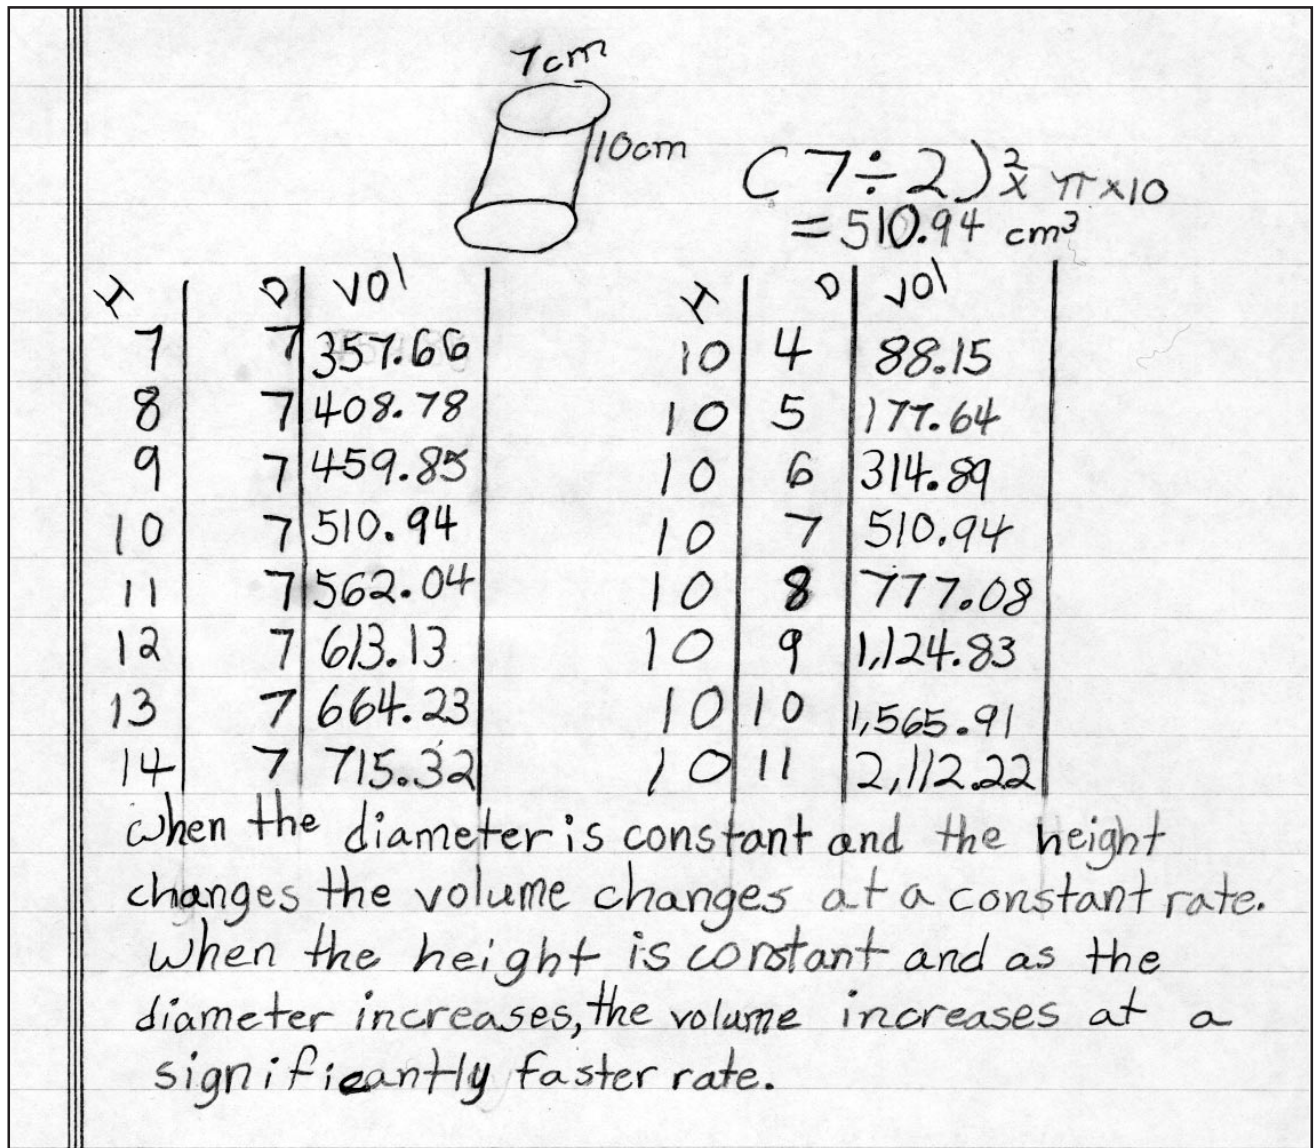 7cm
10cm
(7÷2)² x π x10
= 510.94 cm³
H D Vol
7 7 357.66
8 7 408.78
9 7 459.85
10 7 510.94
11 7 562.04
12 7 613.13
13 7 664.23
14 7 715.32
H D Vol
10 4 88.15
10 5 177.64
10 6 314.89
10 7 510.94
10 8 777.08
10 9 1,124.83
10 10 1,565.91
10 11 2,112.22
when the diameter is constant and the height
changes the volume changes at a constant rate.
When the height is constant and as the
diameter increases, the volume increases at a
significantly faster rate.